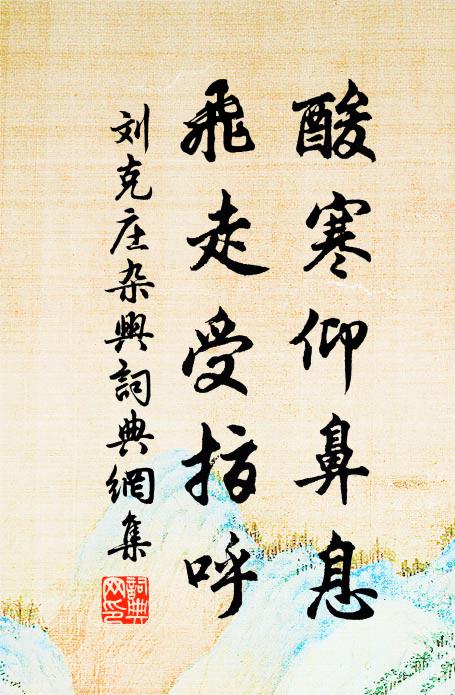 酸寒仰鼻息
飛走受指呼
刘克庄杂興詞典網集
詞典